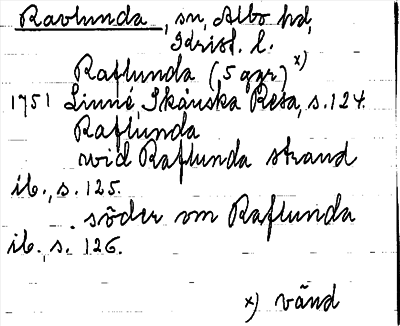 Ravlunda, sn, Albo hd,
Krist. l.
Raflunda (5 ggr) x)
1751 Linné, Skånska Resa, s. 124.
Raflunda
wid Raflunda strand
ib., s. 125.
söder om Raflunda
ib., s. 126.
x) vänd